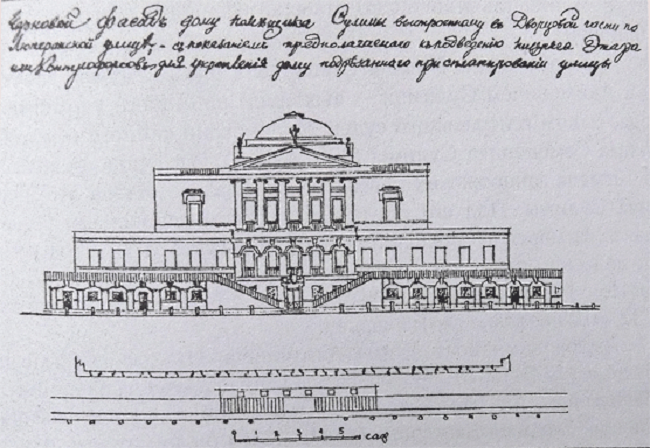 фасадъ дому Сулимы выстроенному въ Дворцовой части по
Лютеранской улицѣ, съ показаніемъ предполагаемаго къ подведенію нижняго Этажа
или Контрфорсовъ для укрепленія дому подрѣзаннаго при спланированіи улицы
0 1 2 3 4 5 саж